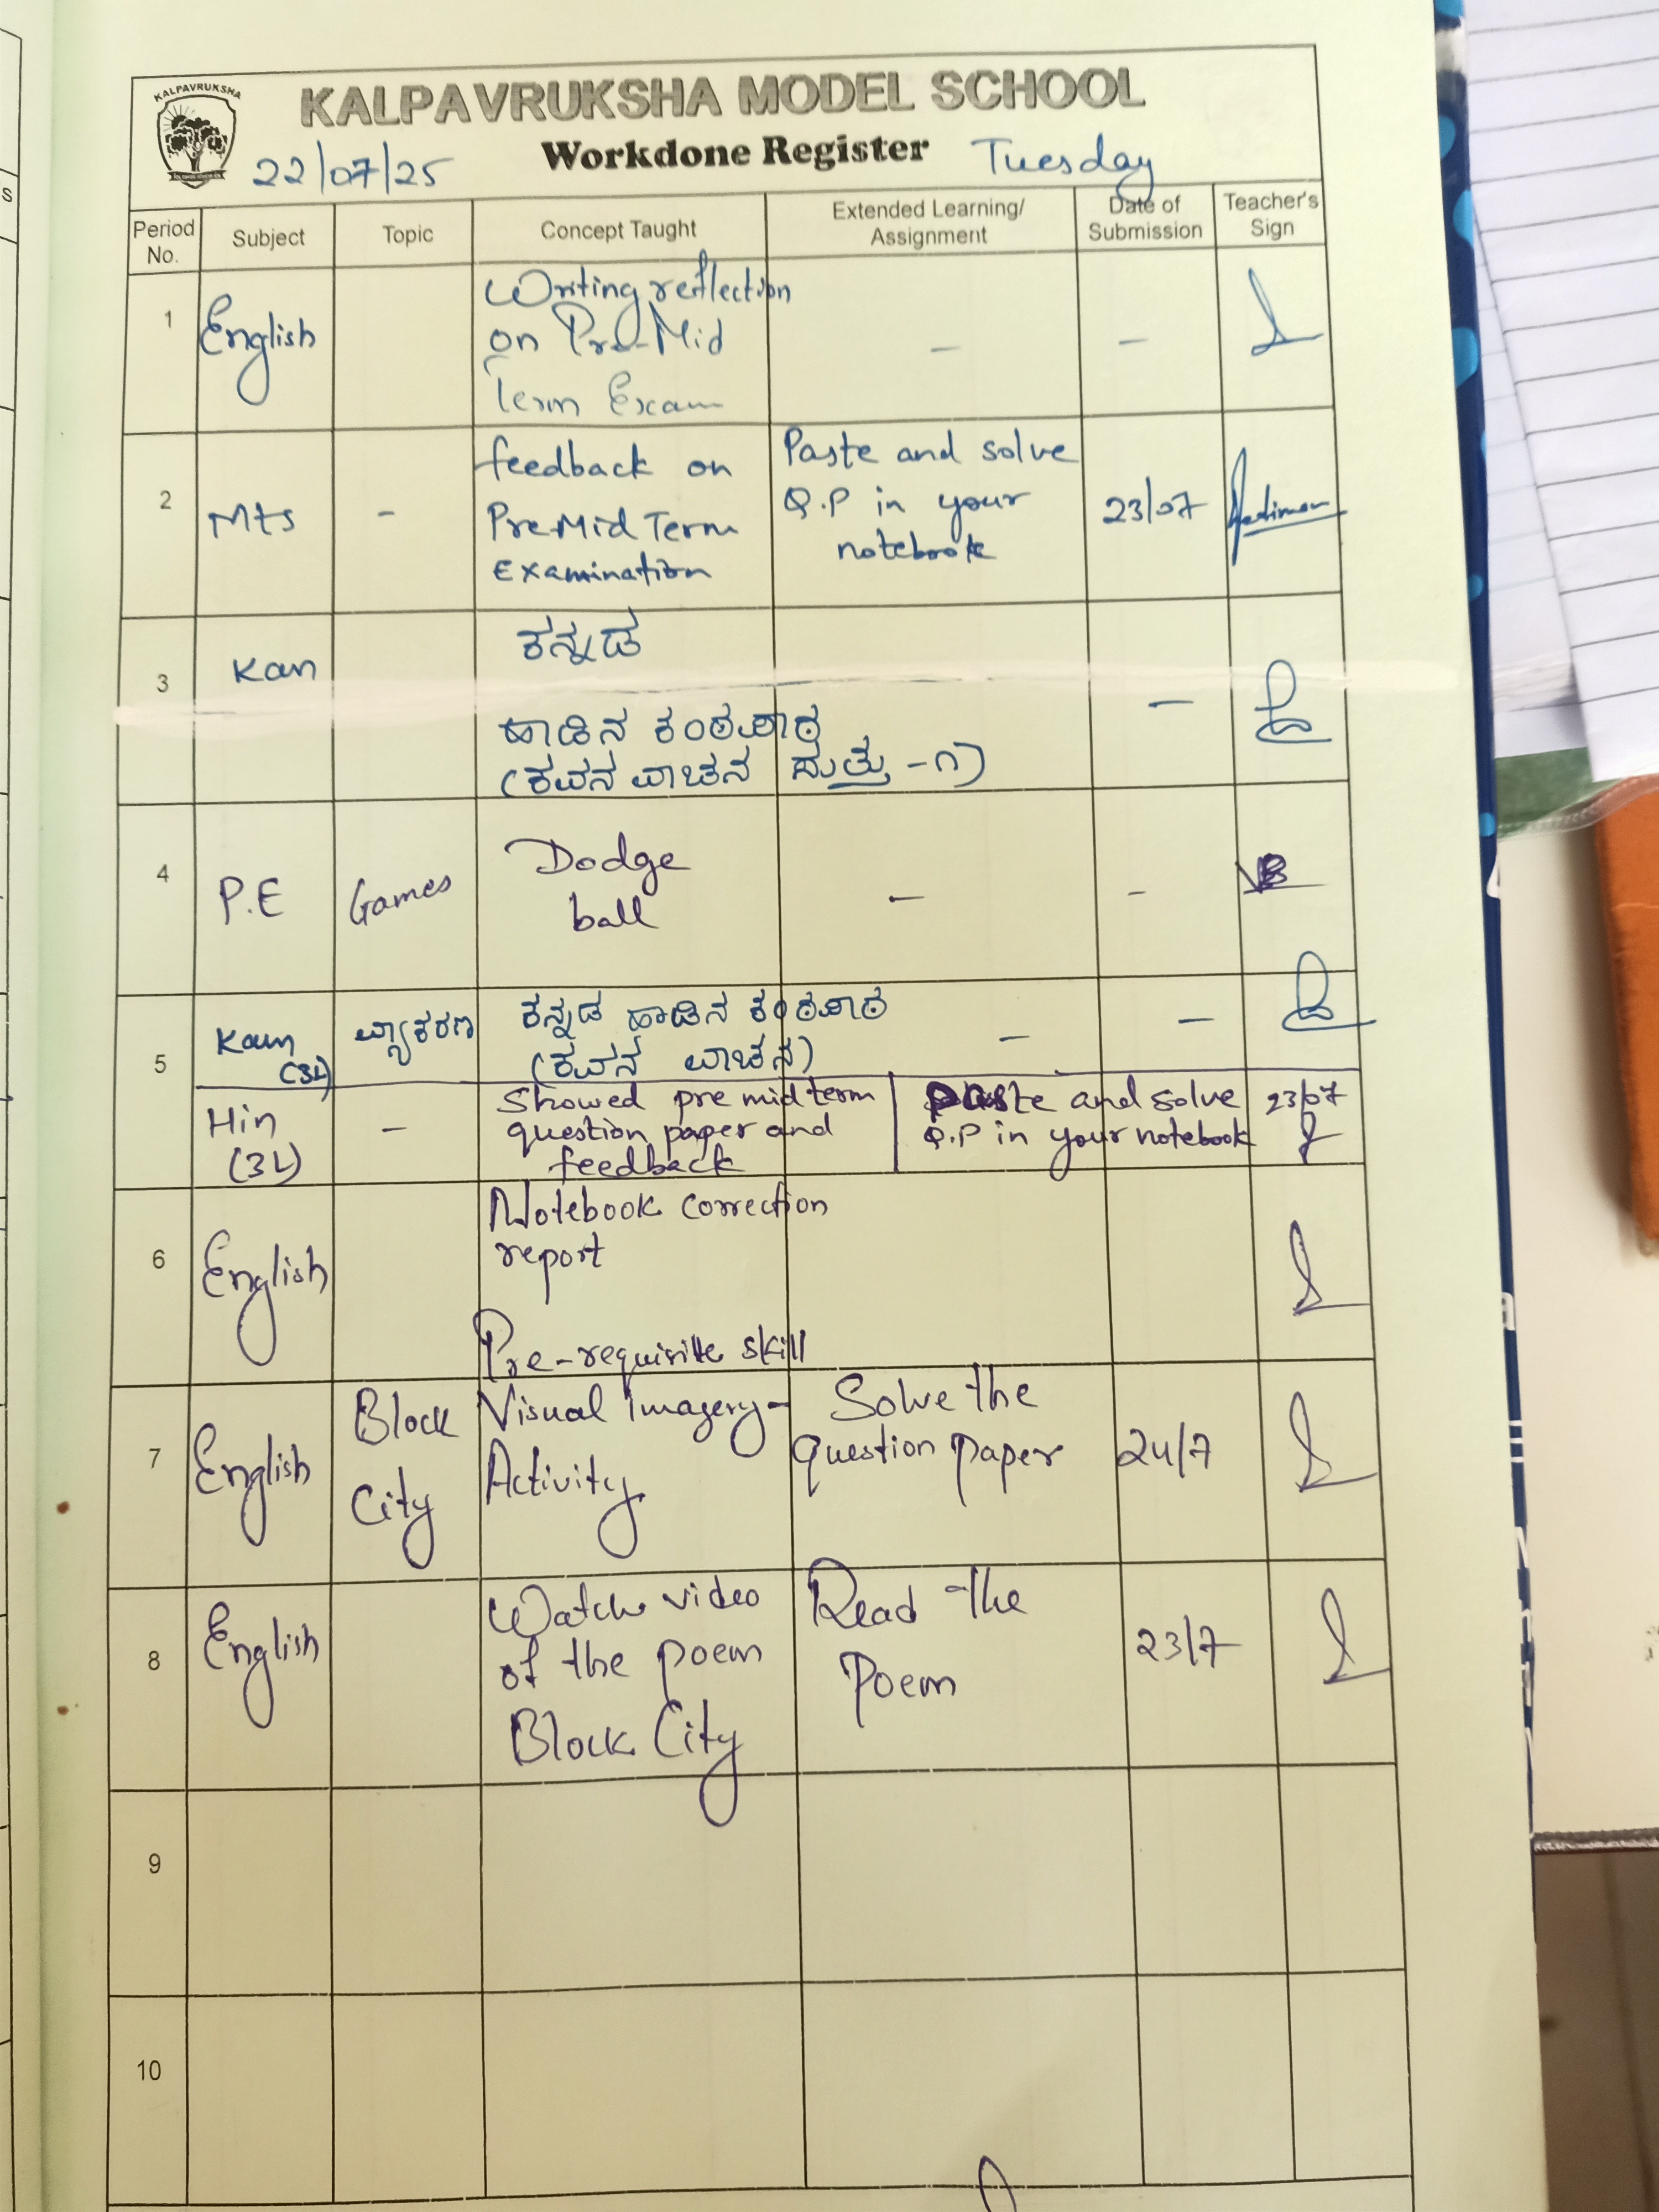 KALPAVRUKSHA
KALPAVRUKSHA MODEL SCHOOL
22/07/25 Workdone Register Tuesday
Period No. Subject Topic Concept Taught Extended Learning/ Assignment Date of Submission Teacher's Sign
1 English Writing reflection
on Pre-Mid
Term Exam - -
2 Mts - feedback on
PreMid Term
Examination
Paste and solve
Q.P in your
notebook
23/07
3 Kan ಕನ್ನಡ
ಹಾಡಿನ ಕಂಠಪಾಠ
(ಕವನ ವಾಚನ ಸುತ್ತು -೧) -
4 P.E Games Dodge
ball - -
5 Kan
(3L) ವ್ಯಾಕರಣ ಕನ್ನಡ ಹಾಡಿನ ಕಂಠಪಾಠ
(ಕವನ ವಾಚನ) - -
Hin
(3L) - Showed pre midterm
question paper and
feedback
Paste and solve
Q.P in your notebook
23/07
6 English Notebook correction
report
Pre-requisite skill
7 English Block
City
Visual Imagery-
Activity
Solve the
question paper
24/7
8 English Watch video
of the poem
Block City
Read the
Poem
23/7
9
10